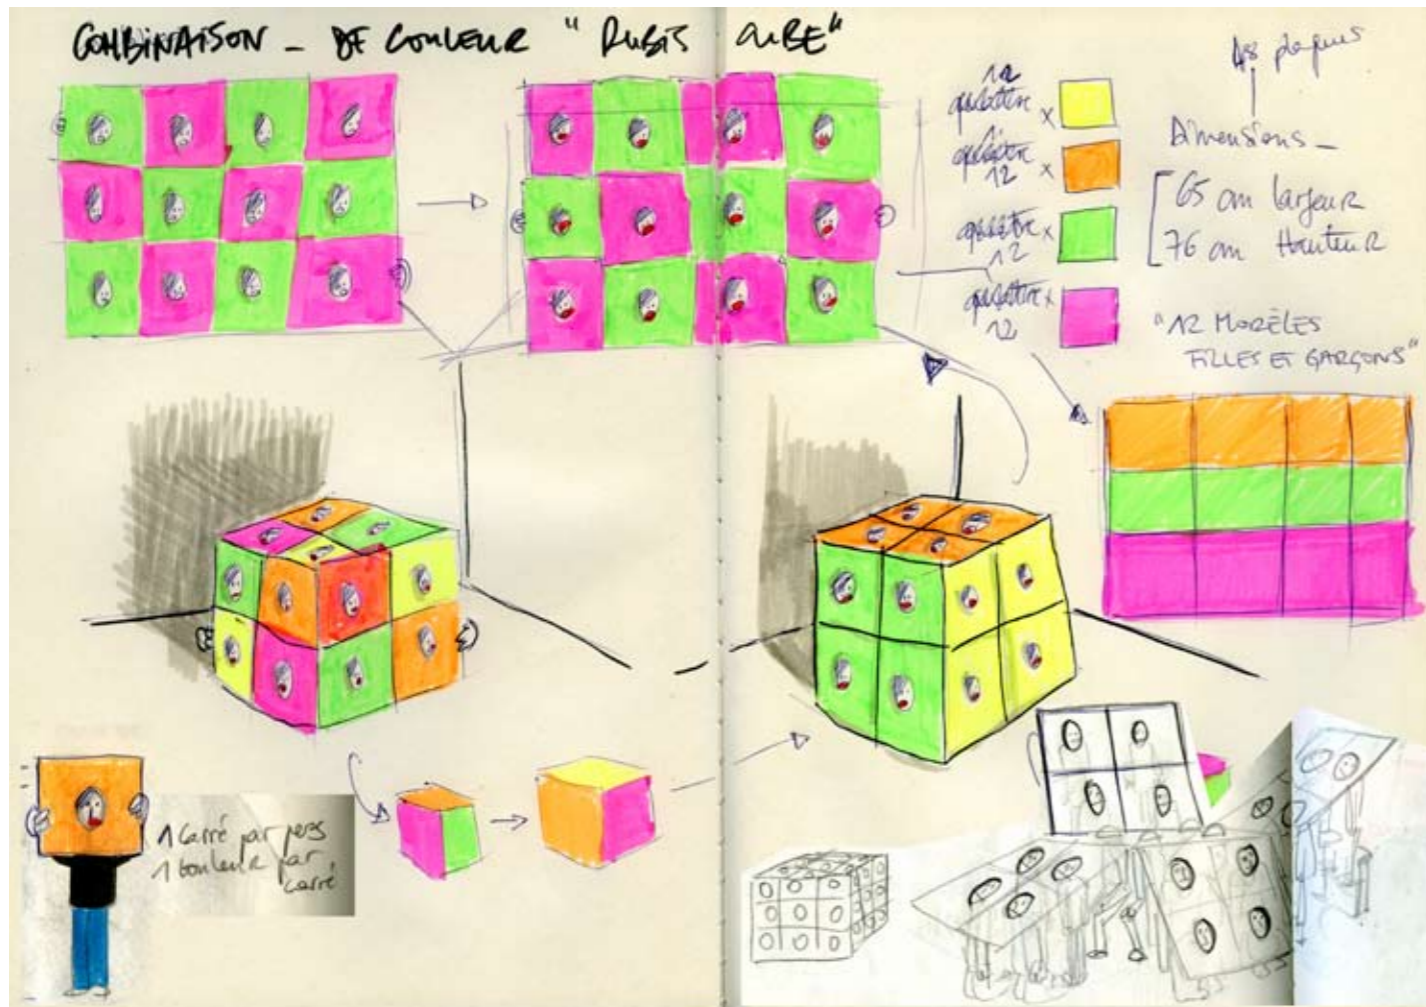 COMBINAISON - DE COULEUR "RUBIS CUBE"
12
x
x
12
x
12
x
12
48 plaques
Dimensions -
65 cm largeur
76 cm Hauteur
"12 MODÈLES
FILLES ET GARÇONS"
1 carré par pers
1 couleur par
carré